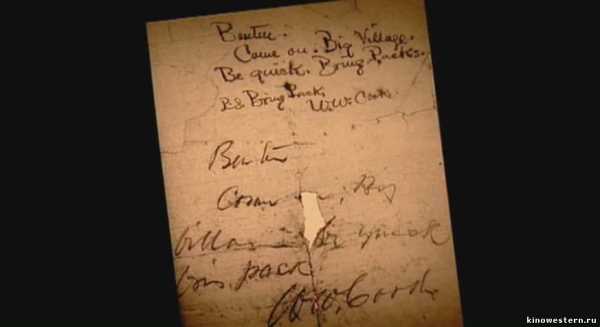 Benteen.
Come on. Big Village.
Be quick. Bring Packs.
P.S. Bring Pack.
W.W. Cooke
Benteen
Come on, Big
village be quick
bring pack
W.W. Cooke
kinowestern.ru